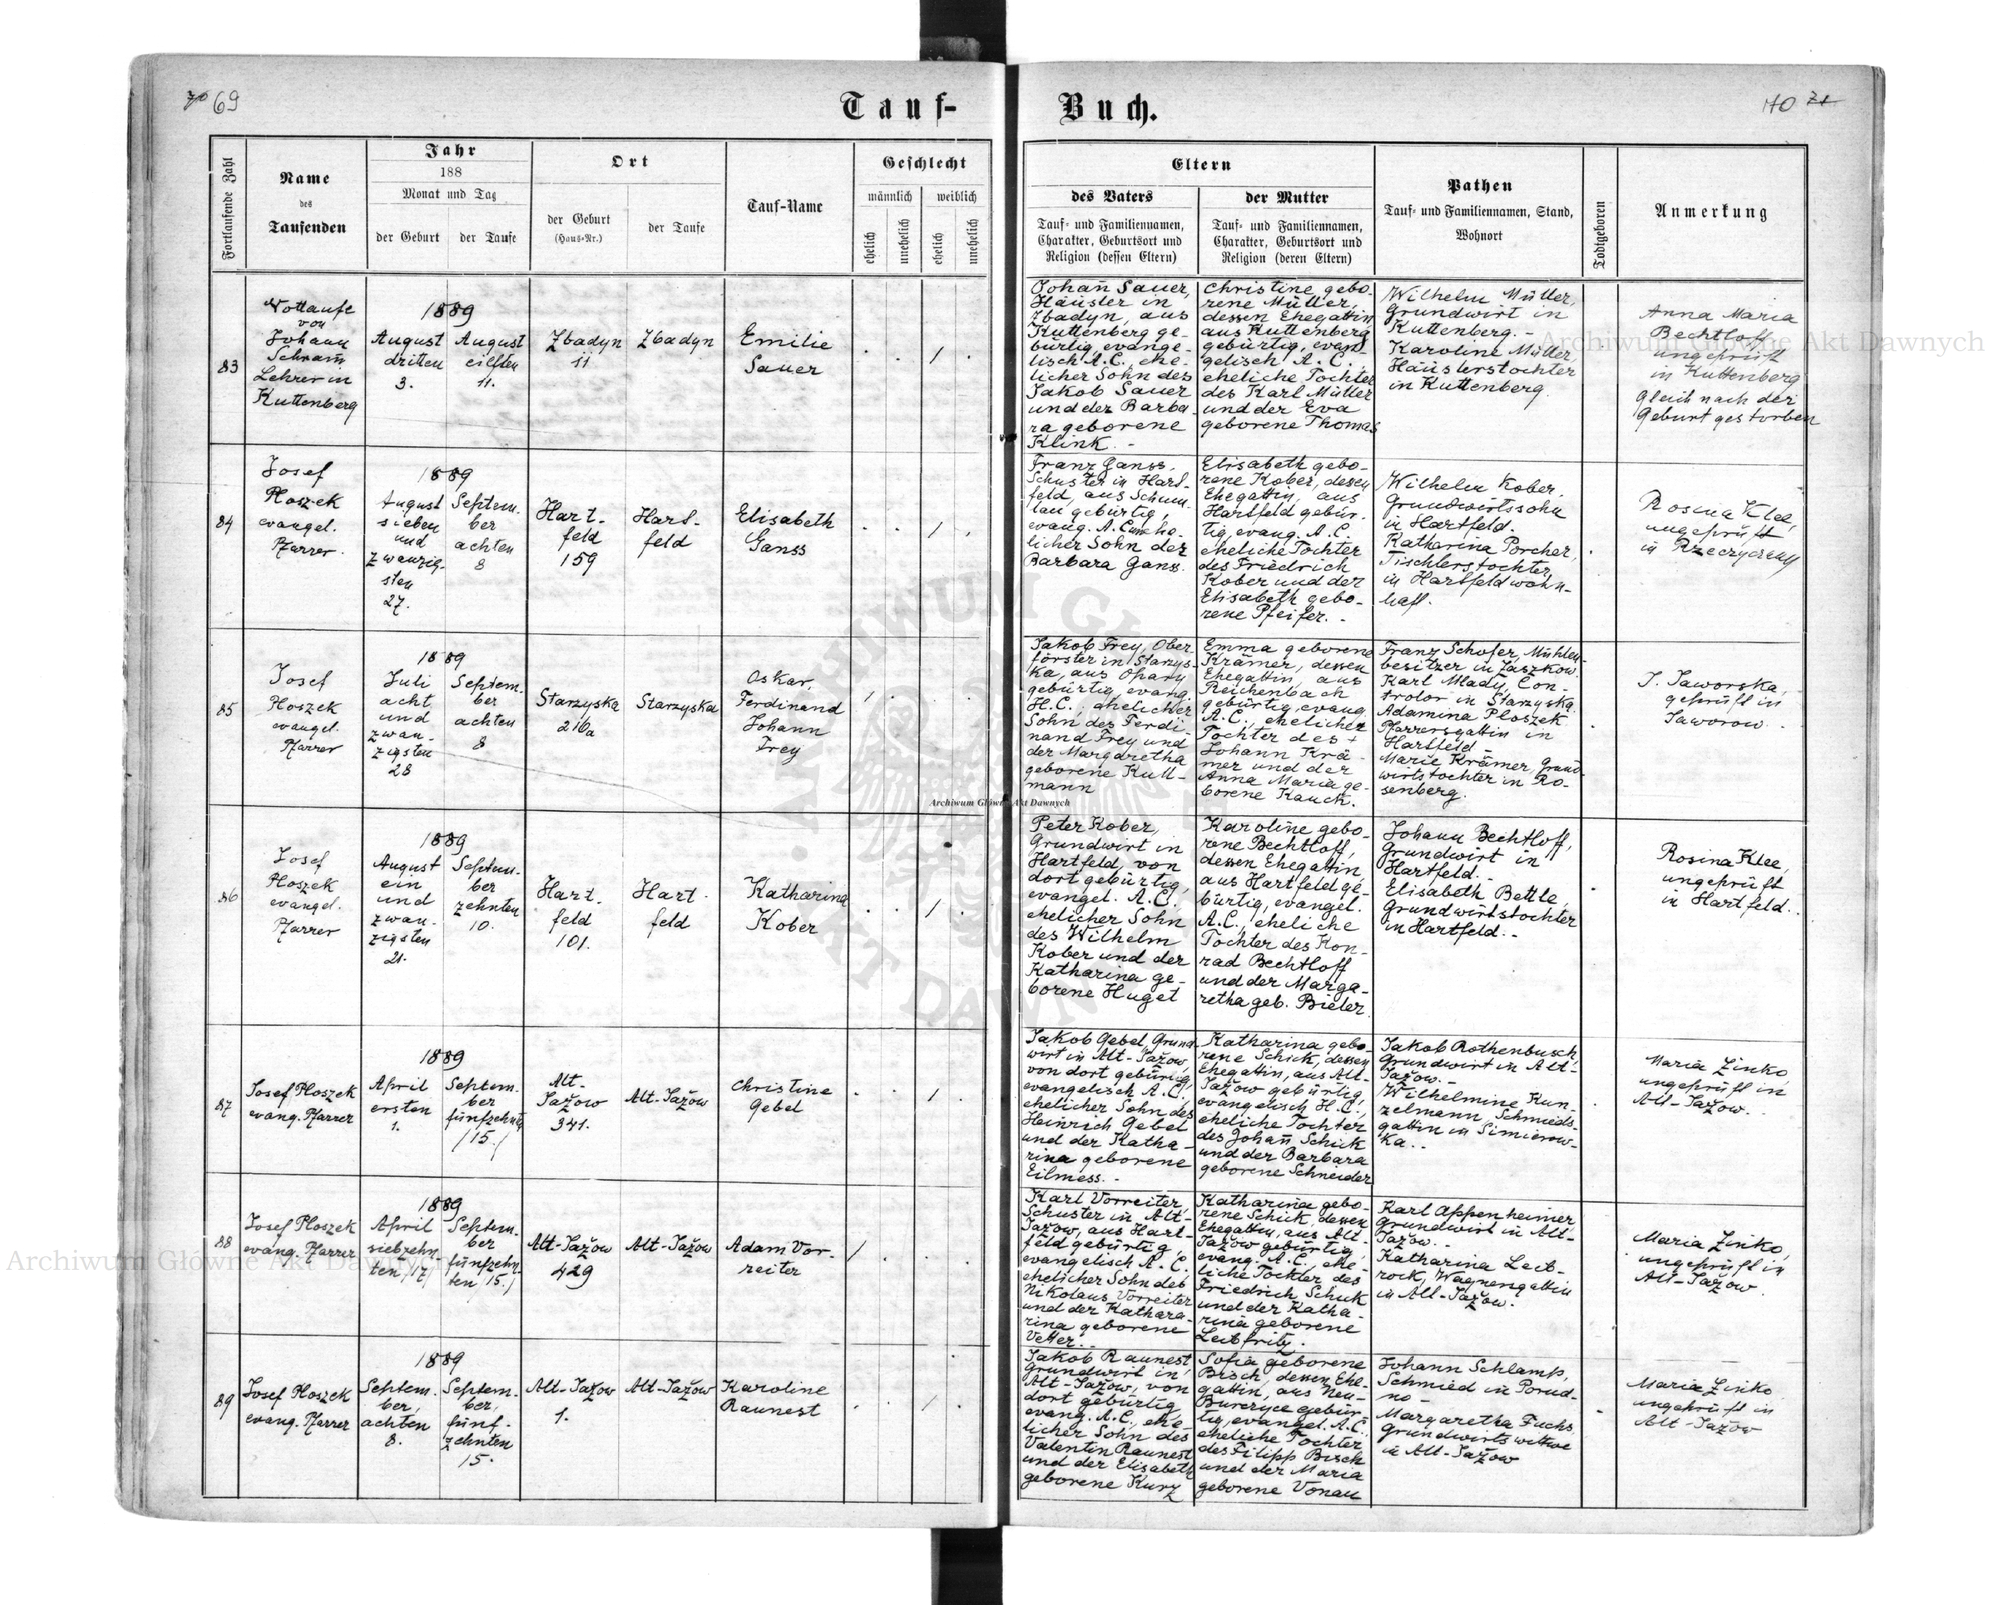 70 69
Tauf-
Buch.
110 71
Fortlaufende Zahl
Name
des
Taufenden
Jahr
188
Monat und Tag
der Geburt
der Taufe
Ort
der Geburt
(Haus-Nr.)
der Taufe
Tauf-Name
Geschlecht
männlich
weiblich
ehelich
unehelich
ehelich
unehelich
Eltern
des Vaters
Tauf- und Familiennamen,
Charakter, Geburtsort und
Religion (dessen Eltern)
der Mutter
Tauf- und Familiennamen,
Charakter, Geburtsort und
Religion (deren Eltern)
Pathen
Tauf- und Familiennamen, Stand,
Wohnort
Todtgeboren
Anmerkung
83
Nottaufe
von
Johann
Schram
Lehrer in
Kuttenberg
1889
August
dritten
3.
August
eilften
11.
Zbadyn
11
Zbadyn
Emilie
Sauer
Johañ Sauer,
Häusler in
Zbadyn, aus
Kuttenberg ge-
bürtig, evange-
lisch A.C., ehe-
licher Sohn des
Jakob Sauer
und der Barba-
ra geborene
Klink. -
Christine gebo-
rene Müller,
dessen Ehegattin
aus Kuttenberg
gebürtig, evan-
gelisch A.C.
eheliche Tochter
des Karl Müller
und der Eva
geborene Thomas
Wilhelm Müller,
Grundwirt in
Kuttenberg. -
Karoline Müller,
Häuslerstochter
in Kuttenberg.
Anna Maria
Bechtloff
ungeprüft
in Kuttenberg
Gleich nach der
Geburt gestorben
84
Josef
Ploszek
evangel.
Pfarrer.
1889
August
sieben
und
zwanzig-
sten
27.
Septem-
ber
achten
8
Hart-
feld
159
Hart-
feld
Elisabeth
Ganss
Franz Ganss,
Schuster in Hart-
feld, aus Schum-
lau gebürtig,
evang. A.C. unehe-
licher Sohn der
Barbara Ganss.
Elisabeth gebo-
rene Kober, dessen
Ehegattin, aus
Hartfeld gebür-
tig, evang. A.C.
eheliche Tochter
des Friedrich
Kober und der
Elisabeth gebo-
rene Pfeifer. -
Wilhelm Kober,
Grundwirtssohn
in Hartfeld.
Katharina Porcher,
Tischlerstochter
in Hartfeld wohn-
haft.
Rosina Klee,
ungeprüft
in Rzeczyczany
85
Josef
Ploszek
evangel.
Pfarrer
1889
Juli
acht
und
zwan-
zigsten
28
Septem-
ber
achten
8
Starzyska
216a
Starzyska
Oskar,
Ferdinand
Johann
Frey
Jakob Frey, Ober-
förster in Starzys-
ka, aus Opary
gebürtig, evang.
H.C., ehelicher
Sohn des Ferdi-
nand Frey und
der Margaretha
geborene Kull-
mann
Emma geborene
Krämer, dessen
Ehegattin, aus
Reichenbach
gebürtig, evang.
A.C., ehelicher
Tochter des +
Johann Krä-
mer und der
Anna Maria ge-
borene Kauck.
Franz Schofer, Mühlen-
besitzer in Jaszkow.
Karl Mlady, Con-
trolor in Starzyska.
Adamina Ploszek
Pfarrersgattin in
Hartfeld -
Marie Krämer, Grund-
wirtstochter in Ro-
senberg.
J. Jaworska,
geprüft in
Jaworow.
86
Josef
Ploszek
evangel.
Pfarrer
1889
August
ein
und
zwan-
zigsten
21.
Septem-
ber
zehnten
10.
Hart-
feld
101.
Hart-
feld
Katharina
Kober
Peter Kober,
Grundwirt in
Hartfeld, von
dort gebürtig,
evangel. A.C.
ehelicher Sohn
des Wilhelm
Kober und der
Katharina ge-
borene Huget
Karoline gebo-
rene Bechtloff,
dessen Ehegattin,
aus Hartfeld ge-
bürtig, evangel.
A.C., eheliche
Tochter des Kon-
rad Bechtloff
und der Marga-
retha geb. Bieler.
Johann Bechtloff,
Grundwirt in
Hartfeld. -
Elisabeth Bettle,
Grundwirtstochter
in Hartfeld. -
Rosina Klee,
ungeprüft
in Hartfeld.
87
Josef Ploszek
evang. Pfarrer
1889
April
ersten
1.
Septem-
ber
fünfzehnten
/15./
Alt-
Jažow
341.
Alt-Jažow
Christine
Gebel
Jakob Gebel, Grund-
wirt in Alt-Jažow,
von dort gebürtig,
evangelisch A.C.,
ehelicher Sohn des
Heinrich Gebel
und der Katha-
rina geborene
Eilmess. -
Katharina gebo-
rene Schick, dessen
Ehegattin, aus Alt-
Jažow gebürtig,
evangelisch H.C.,
eheliche Tochter
des Johañ Schick
und der Barbara
geborene Schneider
Jakob Rothenbusch,
Grundwirt in Alt-
Jažow. -
Wilhelmine Kun-
zelmann, Schmieds-
gattin in Simierow-
ka. -
Maria Zinko
ungeprüft in
Alt-Jažow.
88
Josef Ploszek
evang. Pfarrer
1889
April
siebzehn-
ten /17/
Septem-
ber
fünfzehn-
ten /15./
Alt-Jažow
429
Alt-Jažow
Adam Vor-
reiter
Karl Vorreiter,
Schuster in Alt-
Jažow, aus Hart-
feld gebürtig,
evangelisch A.C.
ehelicher Sohn des
Nikolaus Vorreiter
und der Katha-
rina geborene
Vetter. -
Katharina gebo-
rene Schick, dessen
Ehegattin, aus Alt-
Jažow gebürtig,
evang. A.C., ehe-
liche Tochter des
Friedrich Schick
und der Katha-
rina geborene
Leibfritz.
Karl Appenheimer,
Grundwirt in Alt-
Jažow. -
Katharina Leib-
rock, Wagnersgattin
in Alt-Jažow.
Maria Zinko,
ungeprüft in
Alt-Jažow.
89
Josef Ploszek
evang. Pfarrer
1889
Septem-
ber,
achten
8.
Septem-
ber,
fünf-
zehnten
15.
Alt-Jažow
1.
Alt-Jažow
Karoline
Raunest
Jakob Raunest
Grundwirt in
Alt-Jažow, von
dort gebürtig
evang. A.C., ehe-
licher Sohn des
Valentin Raunest
und der Elisabeth
geborene Kurz
Sofia geborene
Bisch, dessen Ehe-
gattin, aus Neu-
Burczyce gebür-
tig, evangel. A.C.
eheliche Tochter
des Filipp Bisch
und der Maria
geborene Vonau
Johann Schlamp,
Schmied in Porud-
no -
Margaretha Fuchs
Grundwirtswittwe
in Alt-Jažow
Maria Zinko,
ungeprüft in
Alt-Jažow
Archiwum Główne Akt Dawnych
Archiwum Główne Akt Dawnych
Archiwum Główne Akt Dawnych